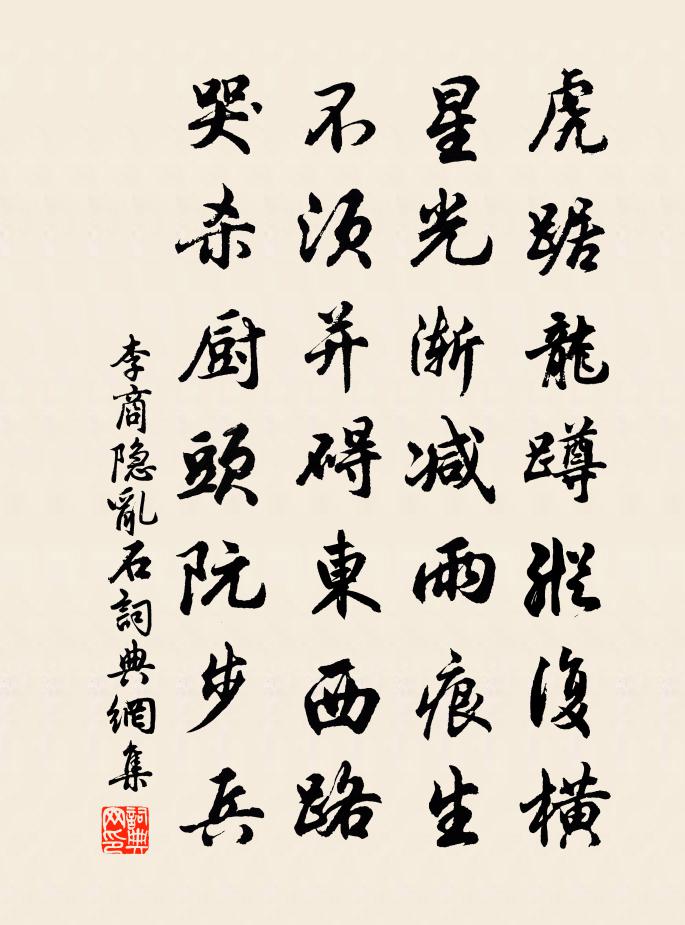 虎踞龍蹲縱復橫
星光漸減雨痕生
不須并碍東西路
哭杀厨頭阮步兵
李商隐亂石詞典網集
詞典网印